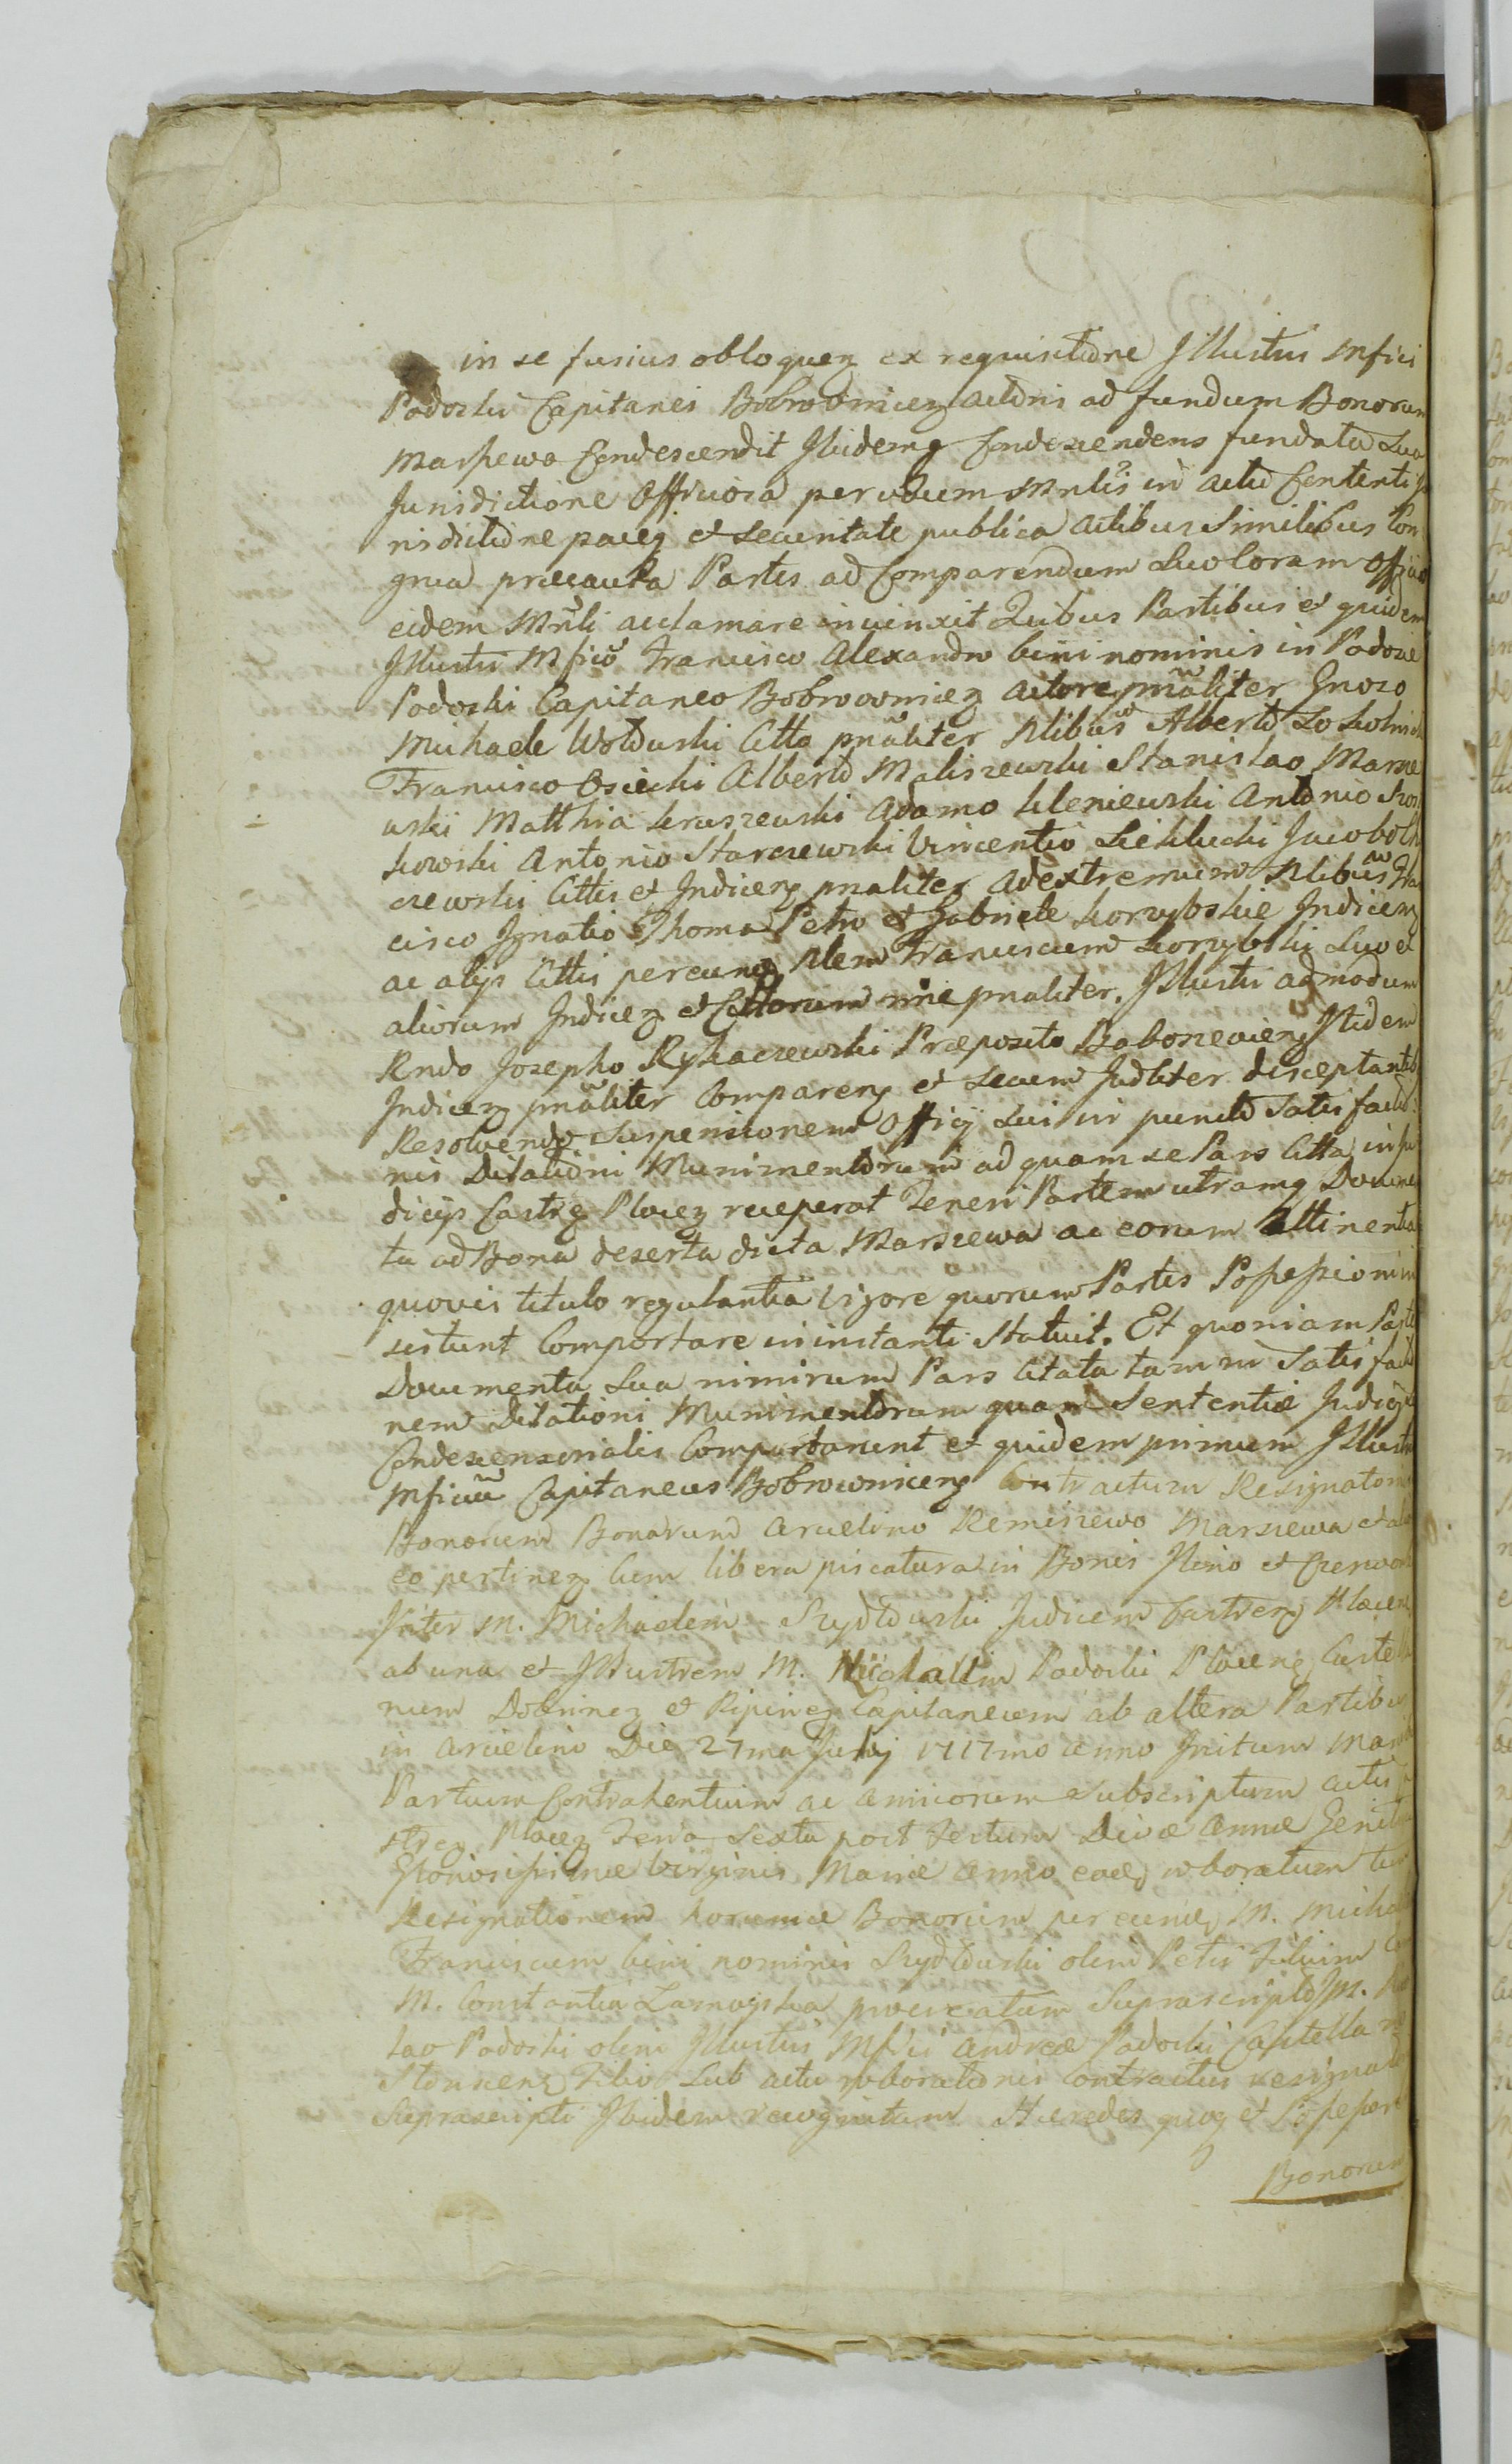 in se fusius obloquen ex requisitione Illustris Mfici
Podoski Capitanei Bobrownicen actoris ad fundum Bonorum
Marszewo Condescendit Ibidemq Condescendens fundata Sua
Jurisdictione Officiosa per Mnlis in actu Contenti
risdictione paceq et securitate publica actibus Similibus Con
grua praecauta Partes ad Comparendum Suo Coram Officio
eidem Mnli acclamare iniunxit Quibus Partibus et quidem
Illustri Mfico Francisco Alexandro bini nominis in Podosie
Podoski Capitaneo Bobrownicen Actore pnaliter Gnoso
Michaele Wolduski Ctto pnaliter Nlibus Alberto Sokolnick
Francisco Osiecki Alberto Maliszewski Stanislao Marsze
wski Matthia Kraszewski Adamo Kleniewski Antonio Ros
kowski Antonio Starczewski Vincentio Siekluchi Jacobo
czewski Cttis et Indicen pnaliter Adextremum Nlibus Fra
cisco Ignatio Thoma Petro et Gabriele Korzybskie Indicen
ac alijs Cttis per eundq Nlem Franciscum Korzybski Suo et
aliorum Indicen et Cttorum nne pnaliter. Illustri admodum
Rndo Josepho Rykaczewski Præposito Baboszevicen Itidem
Indicen pnaliter Comparen et secum Judliter disceptantib
Resolvendo Suspensionem Officij Sui in puncto Satisfactio
nis Dilationi Munimentorum ad quam se Pars Citta in Ju
dicijs Castren Plocen receperat Teneri Partem utramq Docume
ta ad Bona deserta dicta Marszewa ac eorum Attinentia
quovis titulo regulantia Vigore quorum Partes Possessioni in
sistunt Comportare in instanti Statuit. Et quoniam Partes
Documenta Sua nimirum Pars Citata tam in Satisfactio
nem Dilationi Munimentorum quam Sententiæ Judicij
Condescensorialis Comportarunt et quidem primum Illustris
Mficus Capitaneus Bobrownicen Contractum Resignatorium
Bonorum Bonorum Arcelino Kemiszewo Marszewa et ad
eo pertinen cum libera piscatura in Bonis Ilino et Czerwon
Inter M. Michaelem Szydlowski Judicem Castren Plocen
ab una et Illustrem M. Nicolaum Podoski Plocen Castella
num Dobrinen et Ripinen Capitaneum ab altera Partibus
in Arcelino Die 27ma July 1717mo anno Initum Manib
Partium Contrahentium ac amicorum Subscriptum actis
stren Plocen Feria Sexta post Festum Divæ Annæ Genit
Gloriosissimæ Virginis Mariæ Anno eodq roboratum tum
Resignationem horumce Bonorum per eundq M. Micha
Franciscum bini nominis Szydlowski olim Petri Filium
M. Constantia Zamoyska procreatum Suprascripto M. Ni
lao Podoski olim Illustris Mfici Andreæ Podoski Castella
Filio Sub actu roborationis Contractus resignat
Suprascripti Ibidem recognitum Hæredes quoq et Possessore
Bonorum